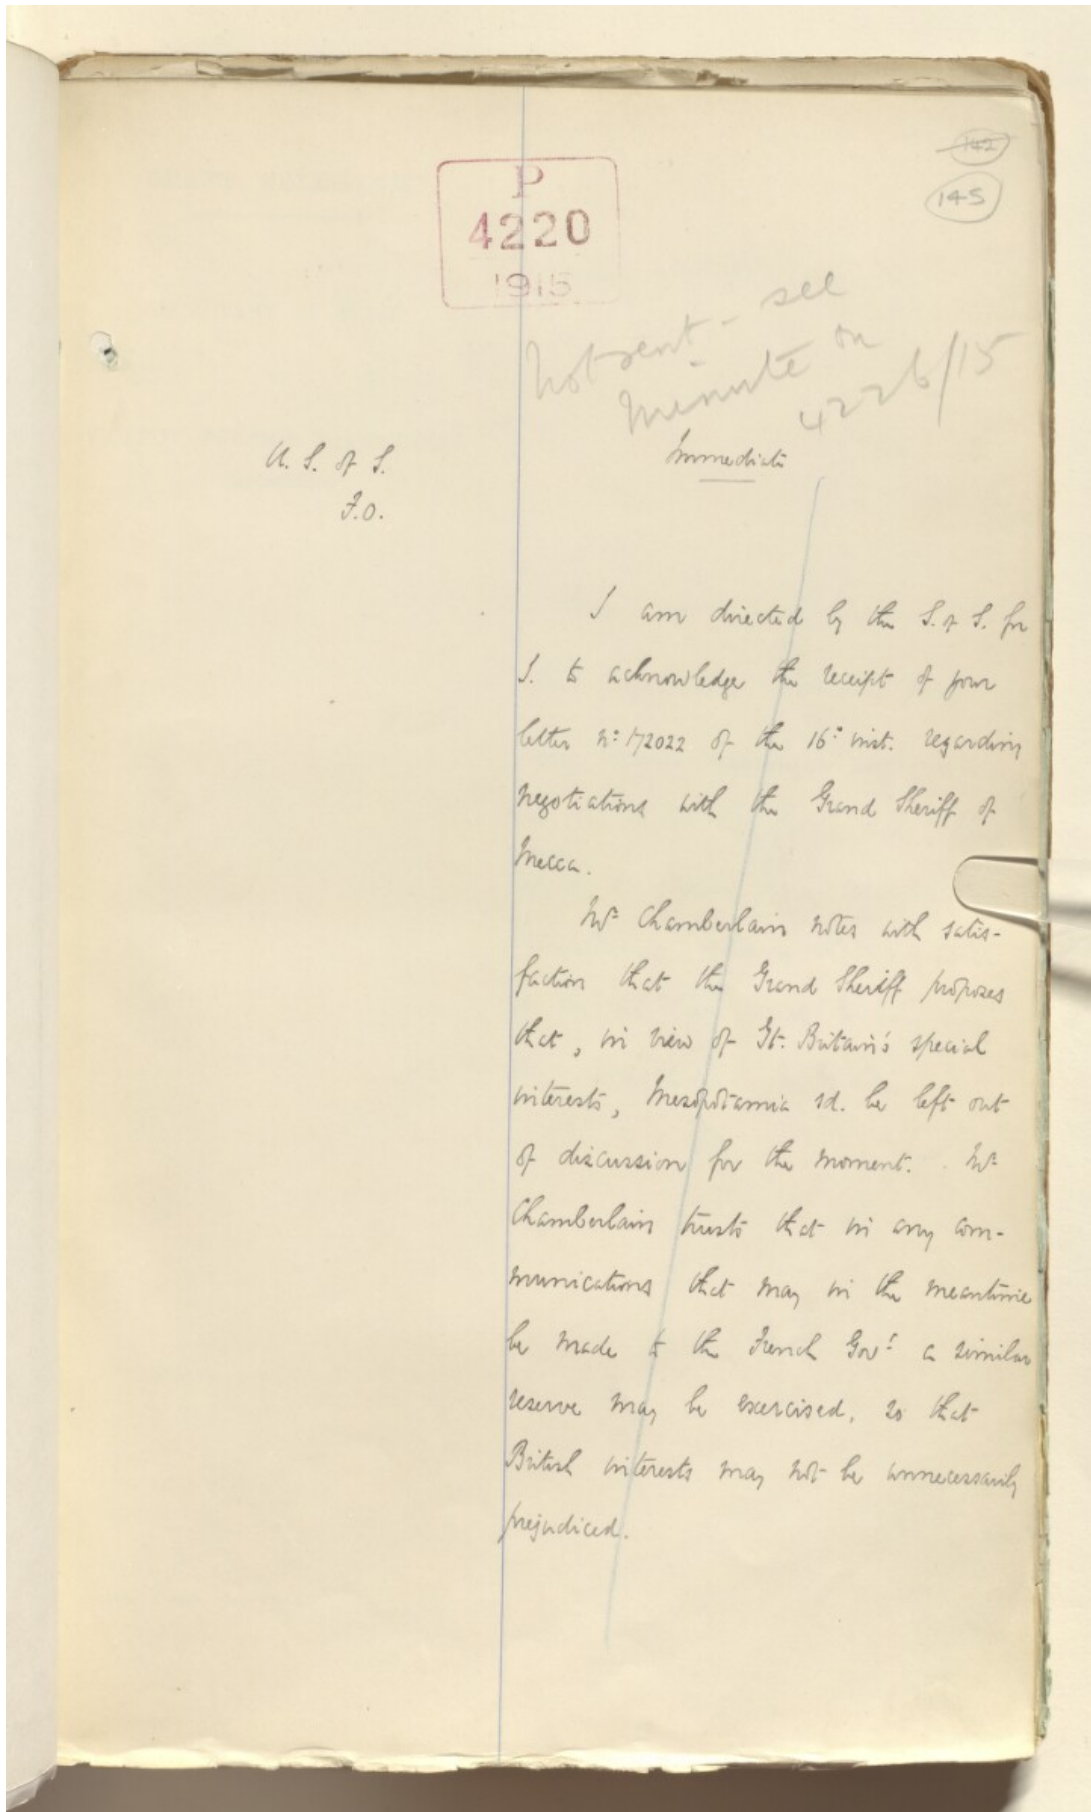 142
145
P
4220
1915
Not sent - see
minute on
4226/15
U. S. of S.
F.O.
Immediate
I am directed by the S. of S. for
I. to acknowledge the receipt of your
letter No. 172022 of the 16th inst. regarding
negotiations with the Grand Sheriff of
Mecca.
Mr Chamberlain notes with satis-
faction that the Grand Sheriff proposes
that, in view of Gt. Britain's special
interests, Mesopotamia sd. be left out
of discussion for the moment. Mr
Chamberlain trusts that in any com-
munications that may in the meantime
be made to the French Govt. a similar
reserve may be exercised, so that
British interests may not be unnecessarily
prejudiced.